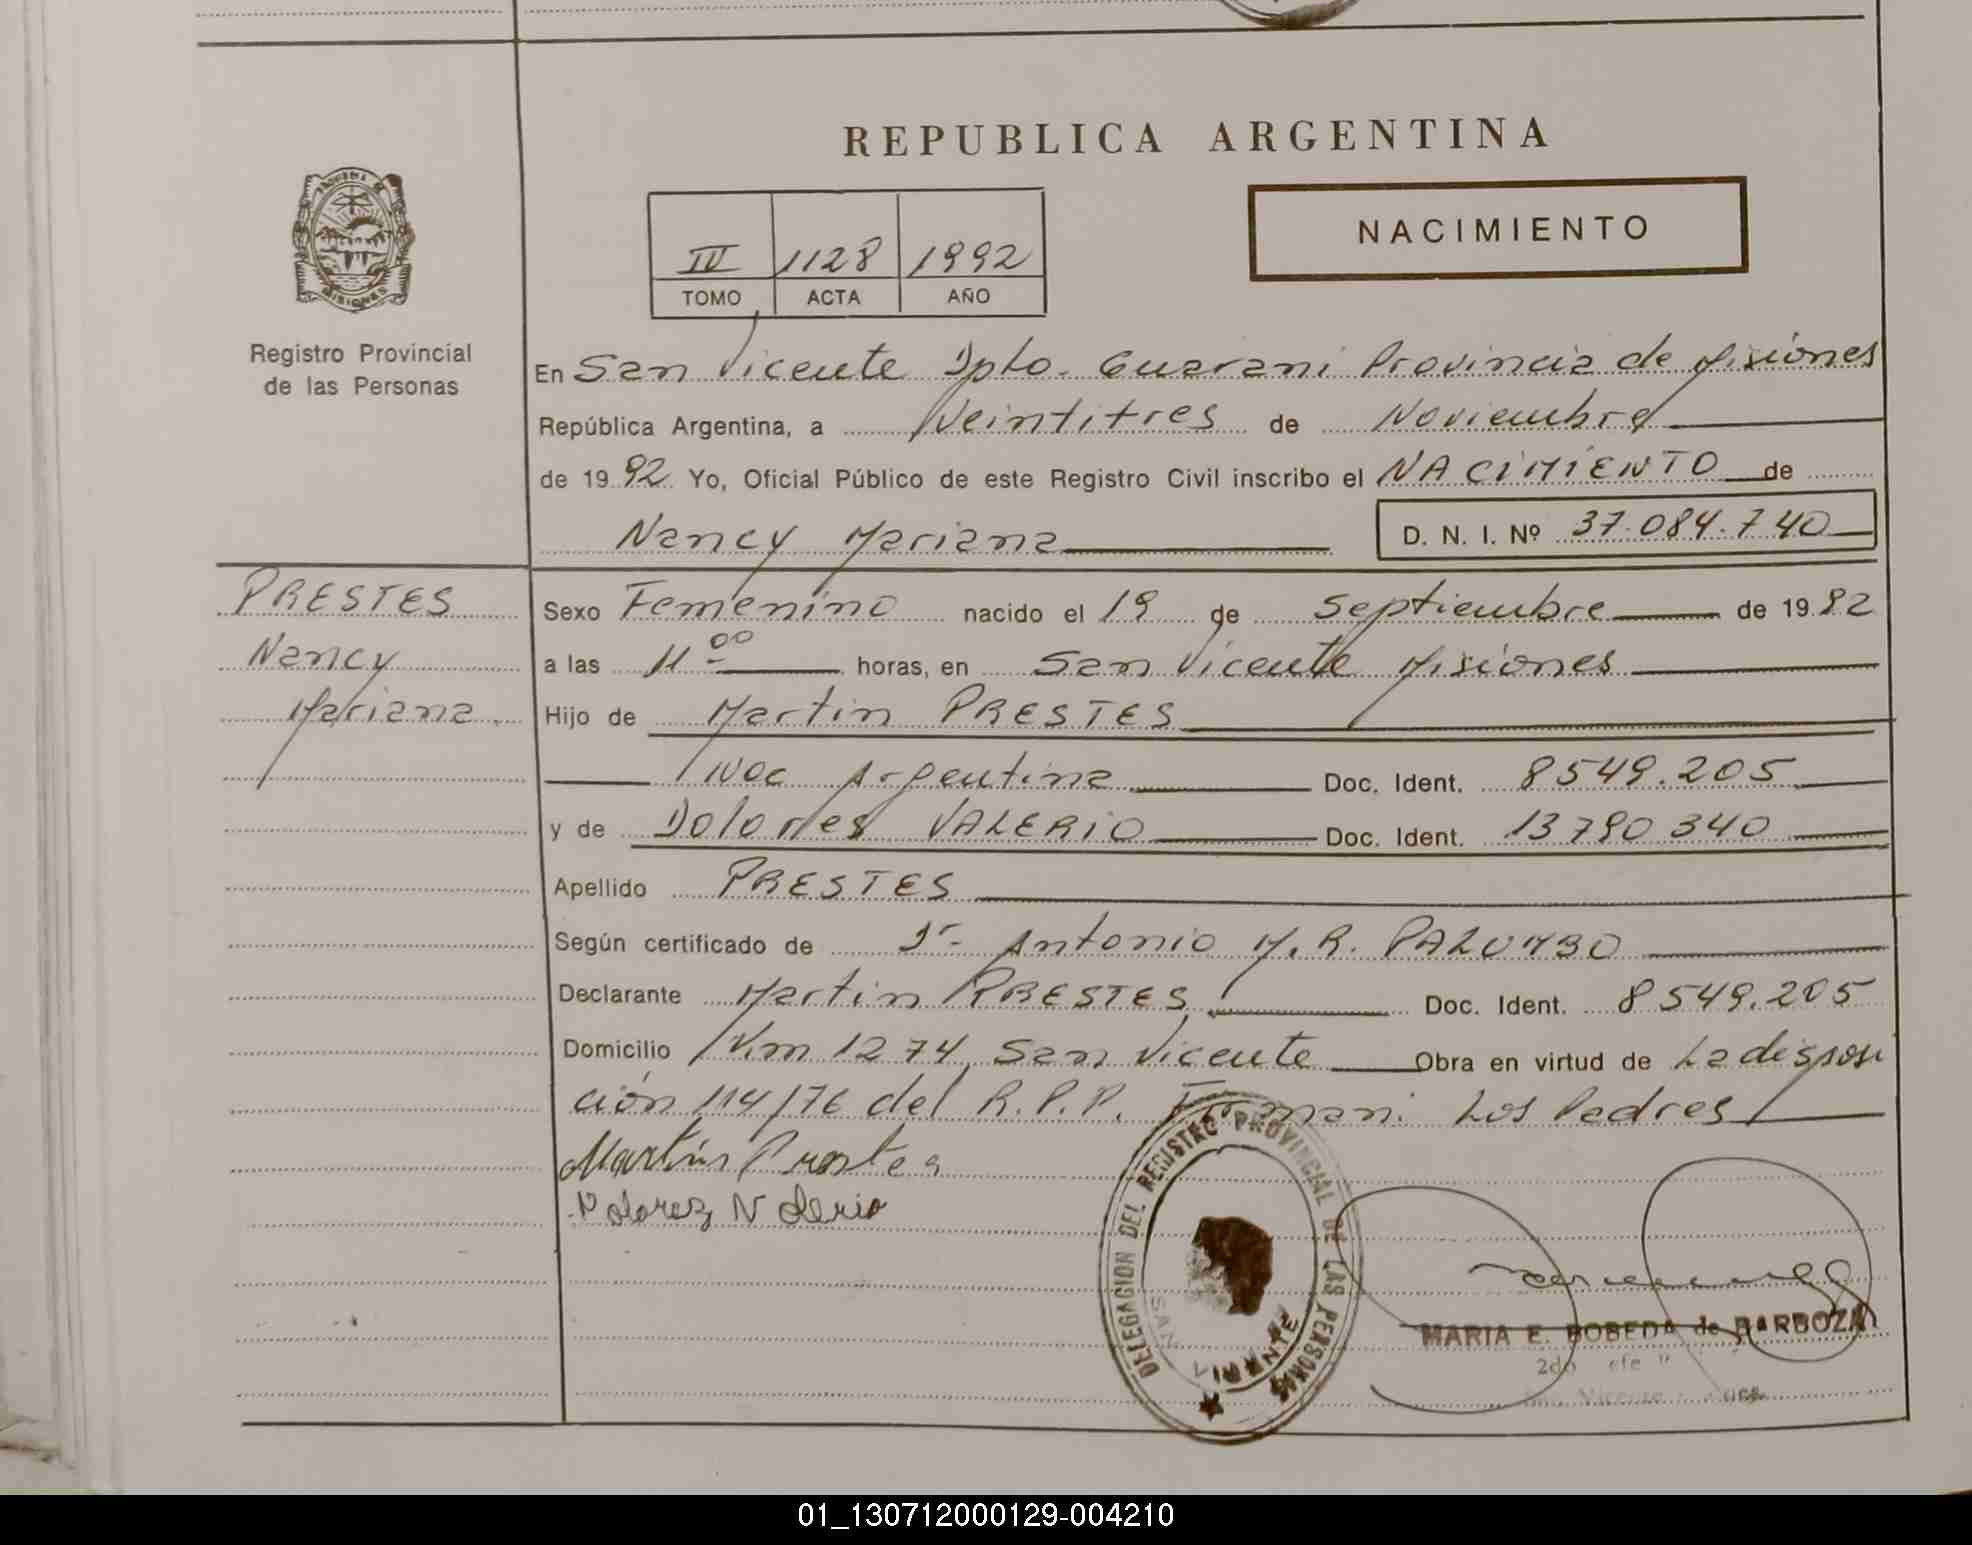 REPUBLICA ARGENTINA
NACIMIENTO
IV 1128 1992
TOMO ACTA AÑO
Registro Provincial
de las Personas
En San Vicente Dpto. Guarani Provincia de Misiones
República Argentina, a Veintitres de Noviembre
de 1992 Yo, Oficial Público de este Registro Civil inscribo el NACIMIENTO de
Nancy Mariana D. N. I. Nº 37.084.740
PRESTES
Nancy
Mariana.
Sexo Femenino nacido el 19 de Septiembre de 1992
a las 11 00 horas, en San Vicente Misiones
Hijo de Martin PRESTES
Nac Argentina Doc. Ident. 8549.205
y de Dolores VALERIO Doc. Ident. 13790340
Apellido PRESTES
Según certificado de Dr Antonio M. R. PALUMBO
Declarante Martin PRESTES Doc. Ident. 8549.205
Domicilio Km 1274 San Vicente Obra en virtud de La disposi
ción 114/76 del R.P.P. Firman: Los Padres
Martín Prestes
Dolorez Valerio
DELEGACION DEL REGISTRO PROVINCIAL DE LAS PERSONAS
SAN VICENTE
MARIA E. BOBEDA de BARBOZA
01_130712000129-004210